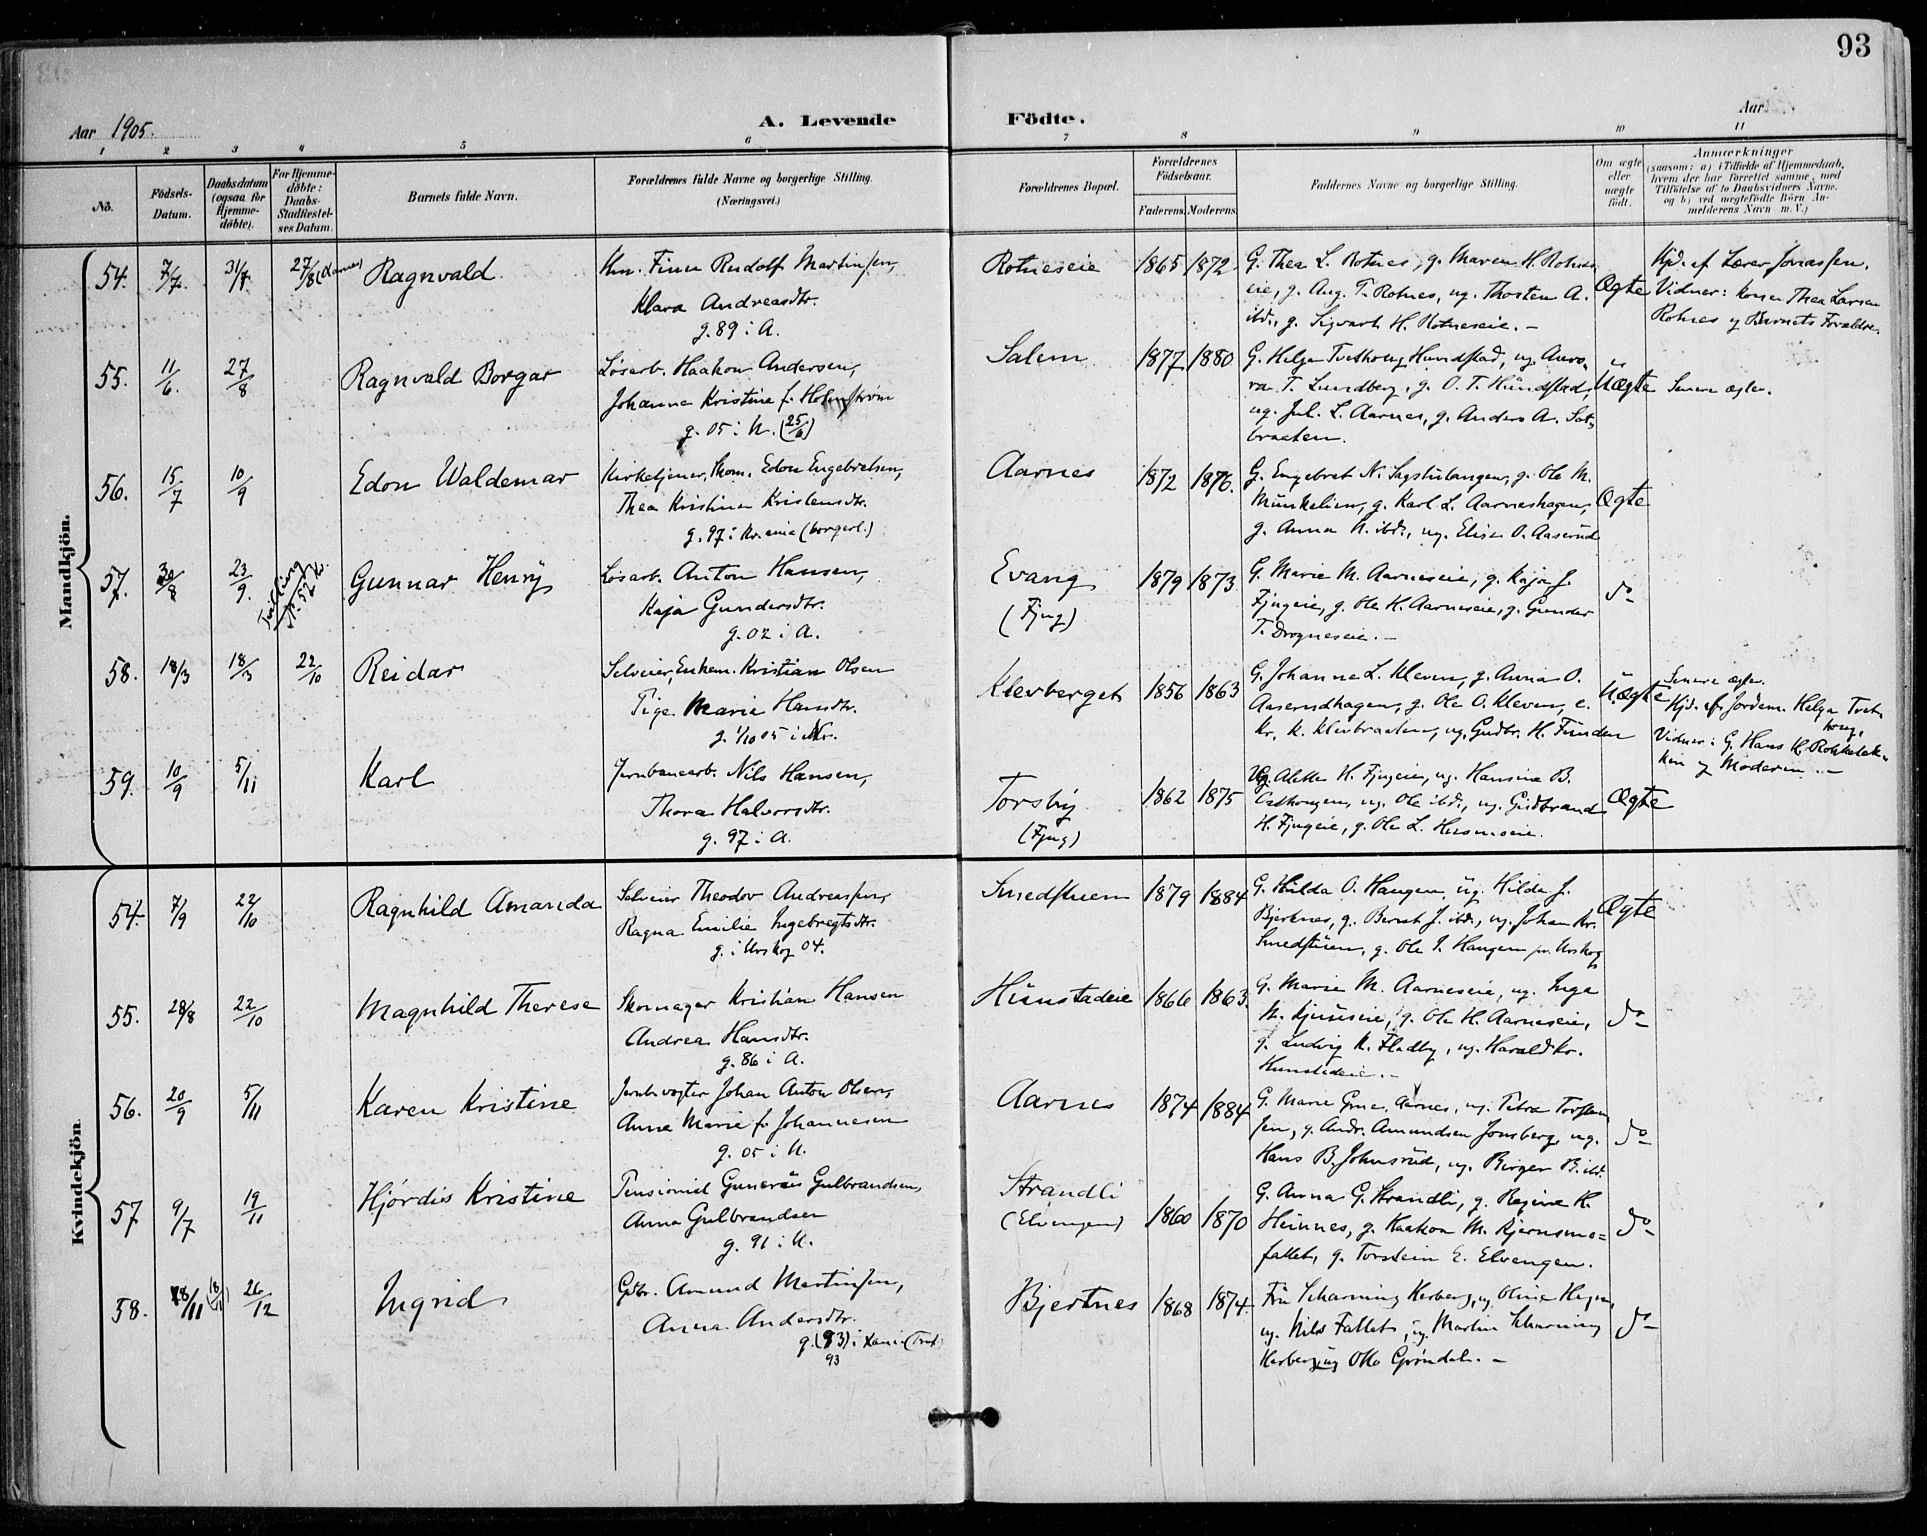 93
Aar 1905.
A. Levende
Födte.
Aar
1 2 3 4 5 6 7 8 9 10 11
No.
Födsels-Datum.
Daabsdatum (ogsaa for Hjemme-döbte).
For Hjemme-döbte: Daabs-Stadfæstel-ses Datum.
Barnets fulde Navn.
Forældrenes fulde Navne og borgerlige Stilling. (Næringsvei.)
Forældrenes Bopæl.
Forældrenes Födselsaar.
Faderens. Moderens.
Faddernes Navne og borgerlige Stilling.
Om ægte eller uægte födt.
Anmærkninger
(saasom: a) i Tilfælde af Hjemmedaab,
hvem der har forrettet samme, med
Tilföielse af to Daabsvidners Navne.
og b) ved uægtefödte Börn An-
melderens Navn m. V.)
Mandkjön.
54. 7/7 31/7 27/8 Ragnvald
Finn Rudolf Martinsen,
Klara Andreasdtr.
g. 89 i A.
Rotneseie 1865 1872
G. Thea L. Rotnes, g. Maren H. Rotnes
eie, g. Aug. T. Rotnes, ug. Thosten A.
ibd., g. Sigvart H. Rotneseie. –
Ægte
Hjd. af Lærer Jonassen.
Vidner: Konen Thea Larsen
Rotnes og Barnets Forældre.
55. 11/6. 27/8 Ragnvald Borgar
Løsarb. Haakon Andersen,
Johanna Kristine f. Holmstrøm
g. 05 i N. (25/6)
Salem 1877 1880
G. Helga Tvethaug Hundstad, ug. Auro-
ra T. Lundberg, g. O. T. Hundstad,
ug. Jul. L. Aarnes, g. Anders A. Sat-
braaten.
Uægte Senere ægtev.
56. 15/7 10/9 Edon Waldemar
Kirketjener, Thom. Edon Engebretsen,
Thea Kristine Kristensdtr.
g. 97 i Kr.ania (borgerl.)
Aarnes 1872 1876.
G. Engebret N. Sagstulangen, g. Ole M.
Munkelien, g. Karl L. Aarneshagen,
g. Anna N. ibd., ug. Elise O. Aaserud
Ægte
57. 30/8 23/9. Tvilling Gunnar Henry
Løsarb. Anton Hansen,
Kaja Gundersdtr.
g. 02 i A.
Evang
(Fjug)
1879 1873
G. Marie M. Aarneseie, g. Kaja J.
Fjugeie, g. Ole H. Aarneseie, g. Gunder
T. Drogneseie. –
do
58. 18/3 18/3 22/10 Reidar
Selveier, Enkem. Kristian Olsen
Pige Marie Hansdtr.
g. 1/10 05 i Nr.
Klevberget 1856 1863
G. Johanne L. Kleven, g. Anna O.
Aaserudhagen, g. Ole O. Kleven, e.
Kr. K. Klevbraaten, ug. Gudbr. H. Funder
Uægte
Senere ægtev.
Hjd. af Jordem. Helga Tvet-
haug.
Vidner: G. Hans H. Rokkelak-
ken og Moderen. –
59. 10/9 5/11 Karl
Jernbanearb. Nils Hansen,
Thora Halvorsdtr.
g. 97 i A.
Torsby
(Fjug)
1862 1875
Ug. Alette H. Fjugeie, ug. Hansine B.
Østhaugen, ug. Ole ibd., ug. Gudbrand
H. Fjugeie, g. Ole L. Husmoeie.
Ægte
Kvindekjön.
54. 7/9 22/10 Ragnhild Amanda
Selveier Theodor Andreassen,
Ragna Emilie Ingebregtsdtr.
g. i Urskog 04.
Smedstuen 1879 1884
G. Hilda O. Haugen, ug. Hilda J.
Bjerknes, g. Bernt J. ibd., ug. Johan Kr.
Smedstuen, g. Ole I. Haugen pr. Urskog
Ægte
55. 28/8 22/10 Magnhild Therese
Skomager Kristian Hansen
Andrea Hansdtr.
g. 86 i A.
Hunstadeie 1866 1863
G. Marie M. Aarneseie, ug. Inga
g. Ole H. Aarneseie,
g. Ludvig K. Fladby, ug. Harald Kr.
Hunstadeie. –
do
56. 20/9 5/11 Karen Kristine
Jernb.vogter Johan Anton Olsen,
Anne Marie f. Johannesen
g. 05 i N.
Aarnes 1874 1884
G. Marie Aarnes, ug. Petra Torsten-
sen, g. Andr. Amundsen Jonsberg, ug.
Hans B. Johnsrud, ug. Birger B. ibd.
do
57 9/7 19/11 Hjørdis Kristine
Pensionist Gunerius Gulbrandsen,
Anna Gulbrandsen
g. 91 i N.
Strandli
(Elvengen)
1860 1870
G. Anna G. Strandli, g. Regine K.
Heinnes, g. Haakon M. Kjernsmo-
fallet, g. Torstein E. Elvengen.
do
58. 18/11 (18/11) 26/12 Ingrid
Gdbr. Amund Martinsen,
Anna Andersdtr.
g. (93) i Xania (Tref.)
93
Bjertnes 1868 1874.
Fru Scharning Herberg, ug. Oline Hagen,
ug. Nils Fallet, ug. Martin Scharning
Herberg, ug Otto Grøndal. –
do